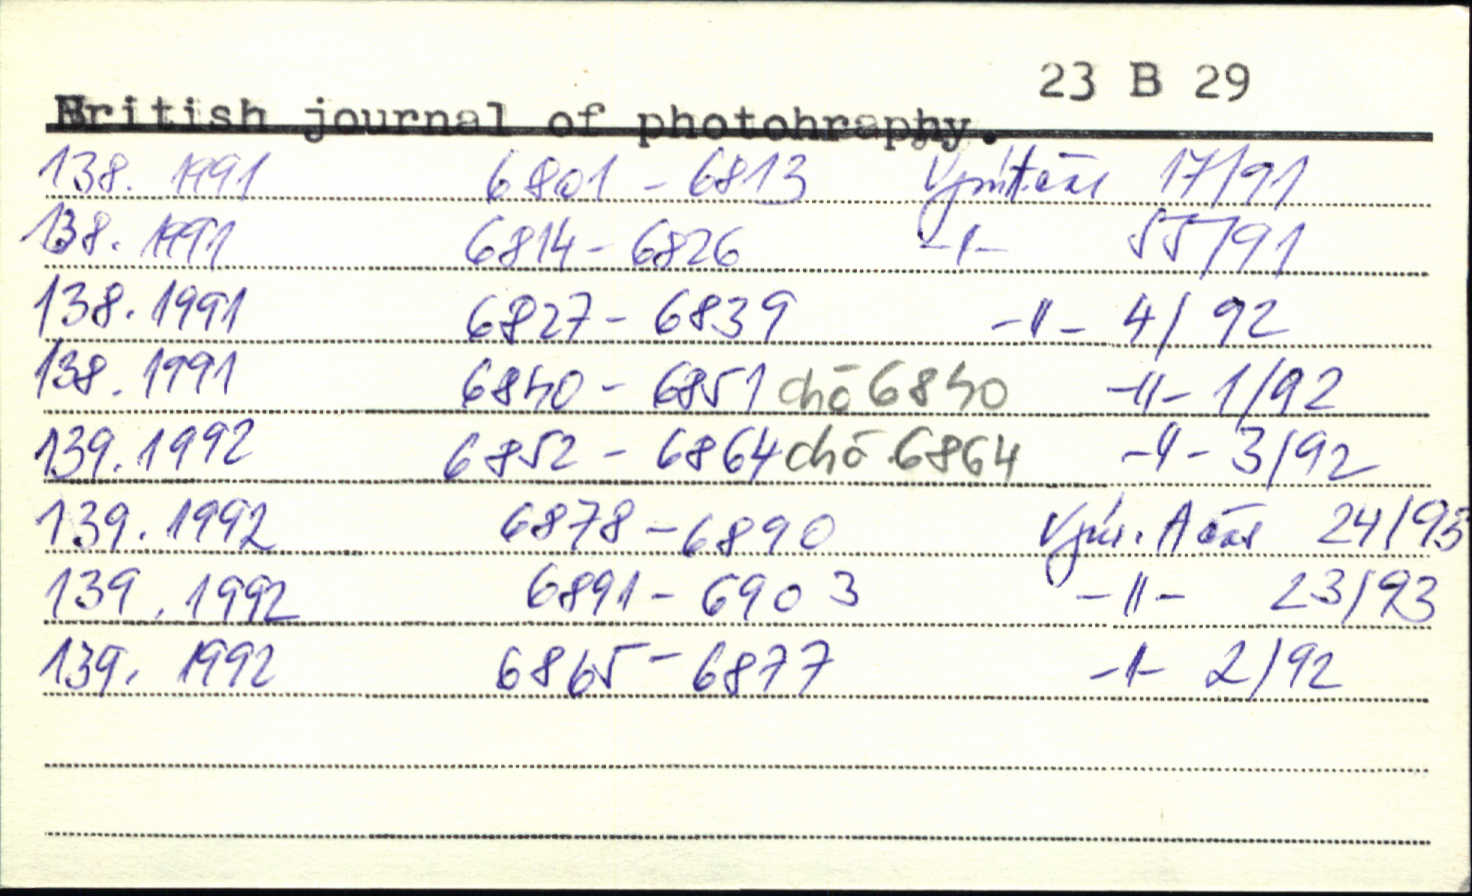 23 B 29
British journal of photohraphy.
138. 1991 6801 - 6813 17/91
138. 1991 6814 - 6826 -"- 55/91
138. 1991 6827 - 6839 -"- 4/92
138. 1991 6840 - 6851 chč 6840 -"- 1/92
139. 1992 6852 - 6864 chč 6864 -"- 3/92
139. 1992 6878 - 6890 24/93
139. 1992 6891 - 6903 -"- 23/93
139. 1992 6865 - 6877 -"- 2/92